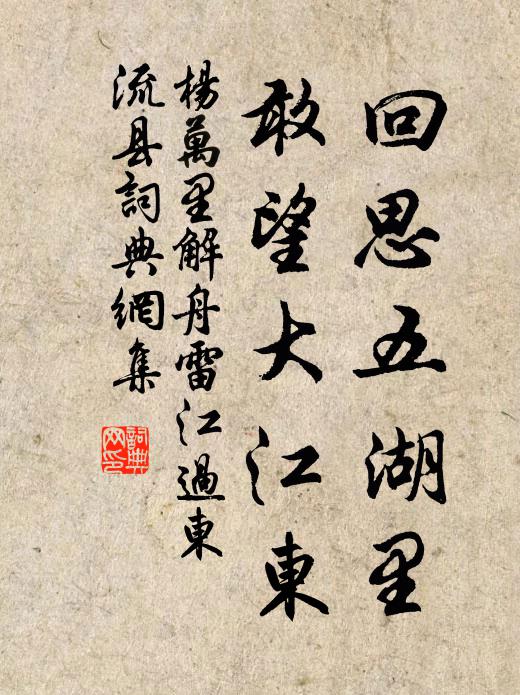 回思五湖里
敢望大江東
楊萬里解舟雷江過東
流县詞典網集
詞典
网印